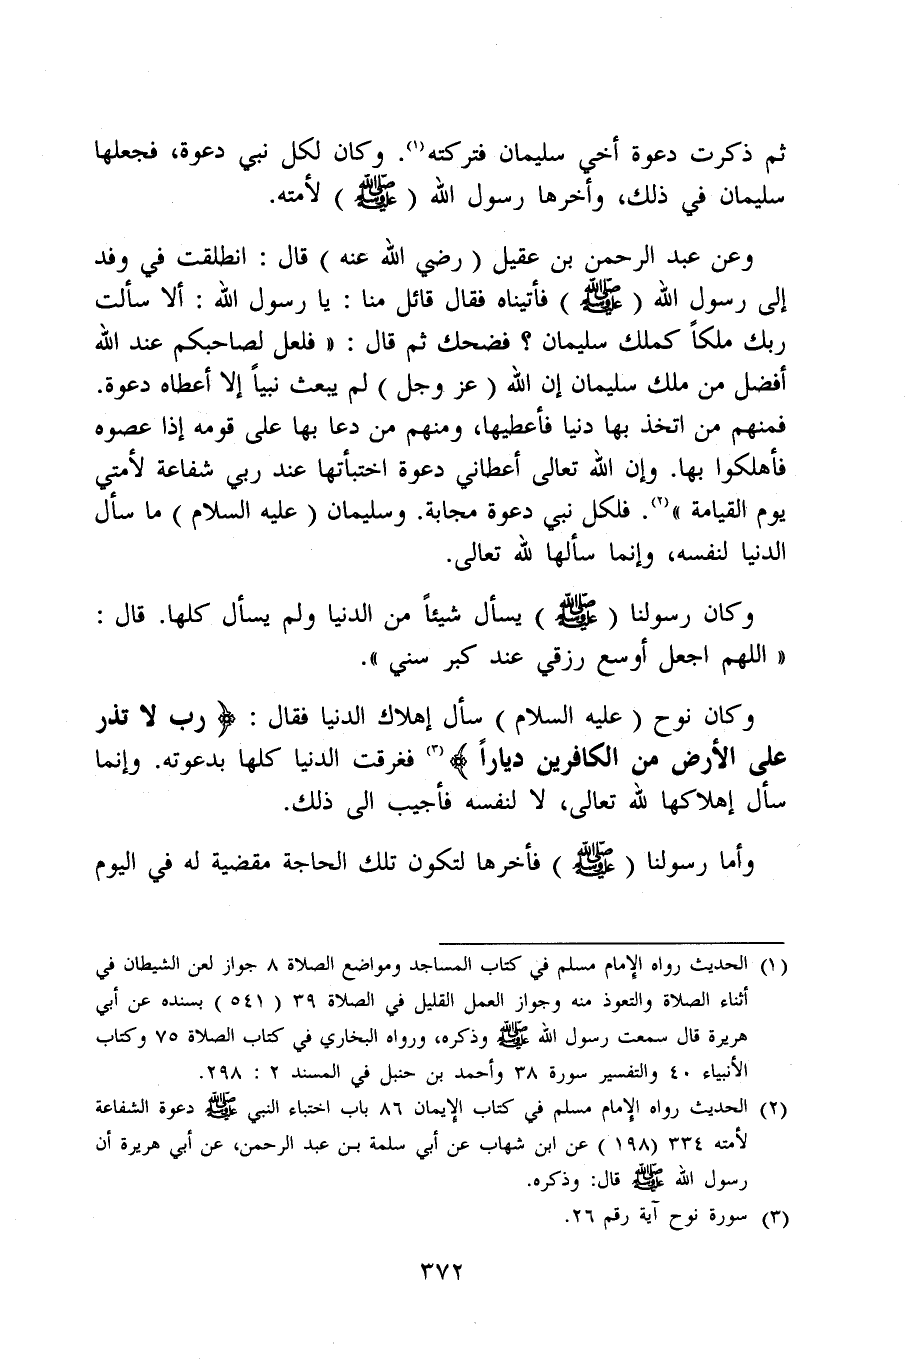 ثم ذكرت دعوة أخي سليمان فتركته(١). وكان لكل نبي دعوة، فجعلها
سليمان في ذلك، وأخرها رسول الله ( ﷺ ) لأمته.
وعن عبد الرحمن بن عقيل ( رضي الله عنه ) قال : انطلقت في وفد
إلى رسول الله ( ﷺ ) فأتيناه فقال قائل منا : يا رسول الله : ألا سألت
ربك ملكاً كملك سليمان ؟ فضحك ثم قال : « فلعل لصاحبكم عند الله
أفضل من ملك سليمان إن الله ( عز وجل ) لم يبعث نبياً إلا أعطاه دعوة.
فمنهم من اتخذ بها دنيا فأعطيها، ومنهم من دعا بها على قومه إذا عصوه
فأهلكوا بها. وإن الله تعالى أعطاني دعوة اختبأتها عند ربي شفاعة لأمتي
يوم القيامة »(٢). فلكل نبي دعوة مجابة. وسليمان ( عليه السلام ) ما سأل
الدنيا لنفسه، وإنما سألها لله تعالى.
وكان رسولنا ( ﷺ ) يسأل شيئاً من الدنيا ولم يسأل كلها. قال :
« اللهم اجعل أوسع رزقي عند كبر سني ».
وكان نوح ( عليه السلام ) سأل إهلاك الدنيا فقال : ﴿ رب لا تذر
على الأرض من الكافرين دياراً ﴾(٣) فغرقت الدنيا كلها بدعوته. وإنما
سأل إهلاكها لله تعالى، لا لنفسه فأجيب الى ذلك.
وأما رسولنا ( ﷺ ) فأخرها لتكون تلك الحاجة مقضية له في اليوم
(١) الحديث رواه الإمام مسلم في كتاب المساجد ومواضع الصلاة ٨ جواز لعن الشيطان في
أثناء الصلاة والتعوذ منه وجواز العمل القليل في الصلاة ٣٩ ( ٥٤١ ) بسنده عن أبي
هريرة قال سمعت رسول الله ﷺ وذكره، ورواه البخاري في كتاب الصلاة ٧٥ وكتاب
الأنبياء ٤٠ والتفسير سورة ٣٨ وأحمد بن حنبل في المسند ٢ : ٢٩٨.
(٢) الحديث رواه الإمام مسلم في كتاب الإيمان ٨٦ باب اختباء النبي ﷺ دعوة الشفاعة
لأمته ٣٣٤ (١٩٨ ) عن ابن شهاب عن أبي سلمة بن عبد الرحمن، عن أبي هريرة أن
رسول الله ﷺ قال: وذكره.
(٣) سورة نوح آية رقم ٢٦.
٣٧٢